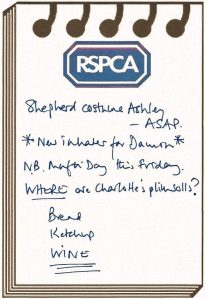 RSPCA
Shepherd costume Ashley
– ASAP.
*New inhaler for Damon*
N.B. Mufti Day this Friday.
WHERE are Charlotte's plimsolls?
Bread
Ketchup
WINE